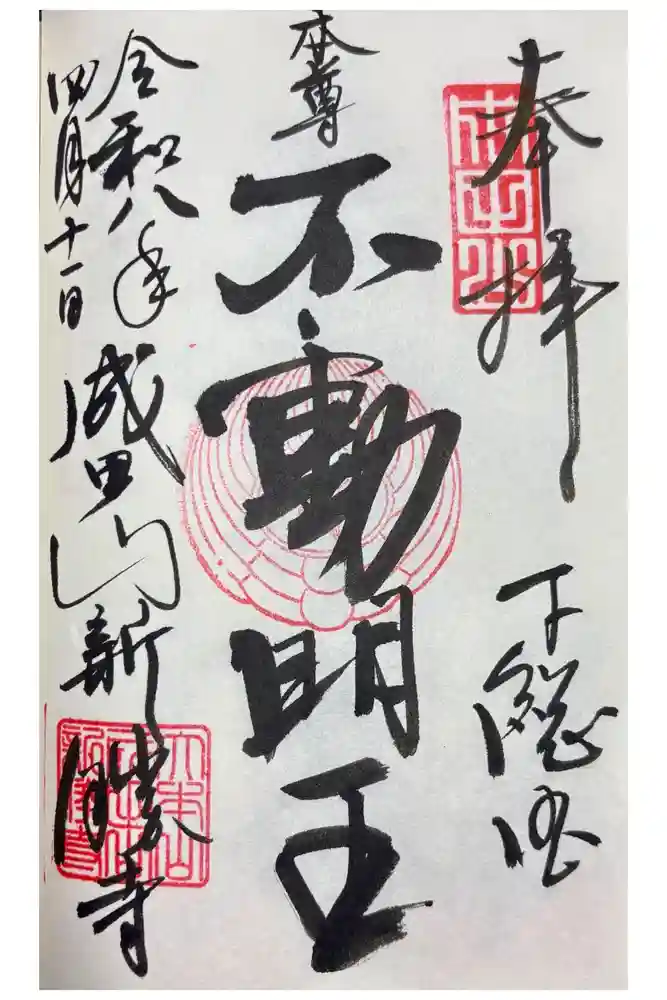 奉拝
下總國
本尊
不動明王
令和八年
四月十一日
成田山新勝寺
成田山